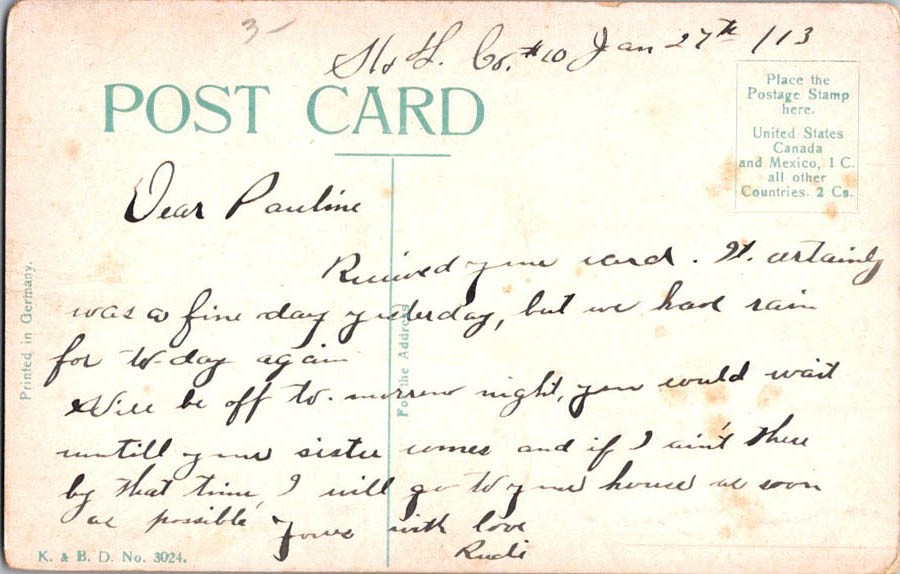 3-
H & L. Co. #10 Jan 27th /13
POST CARD
Place the
Postage Stamp
here.
United States
Canada
and Mexico, 1 C.
all other
Countries. 2 Cs.
Dear Pauline
Recieved your card. It certainly
was a fine day yesterday, but we have rain
for to-day again
Will be off to-morrow night, you could wait
untill your sister comes and if I ain't there
by that time I will go to your house as soon
as possible
Yours with love
Rudi
For the Address
Printed in Germany.
K. & B. D. No. 3024.